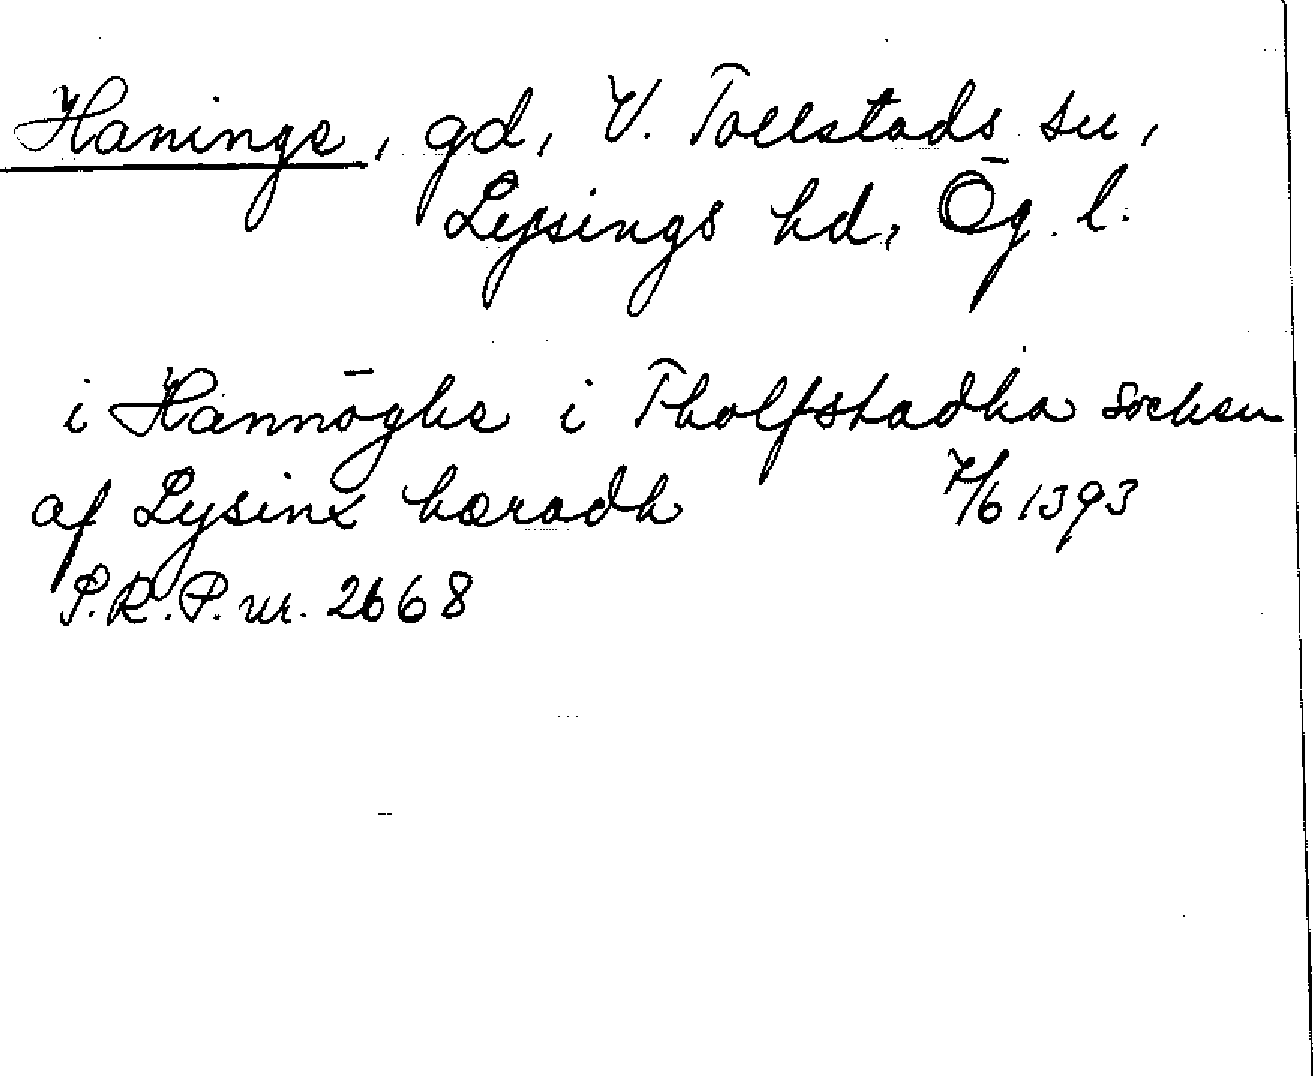 Haninge, gd, V. Tollstads sn,
Lysings hd, Ög. l.
i Hannöghe i Tholfstadha sochen
af Lysinx hæradh 7/6 1393
S.R.P. nr. 2668